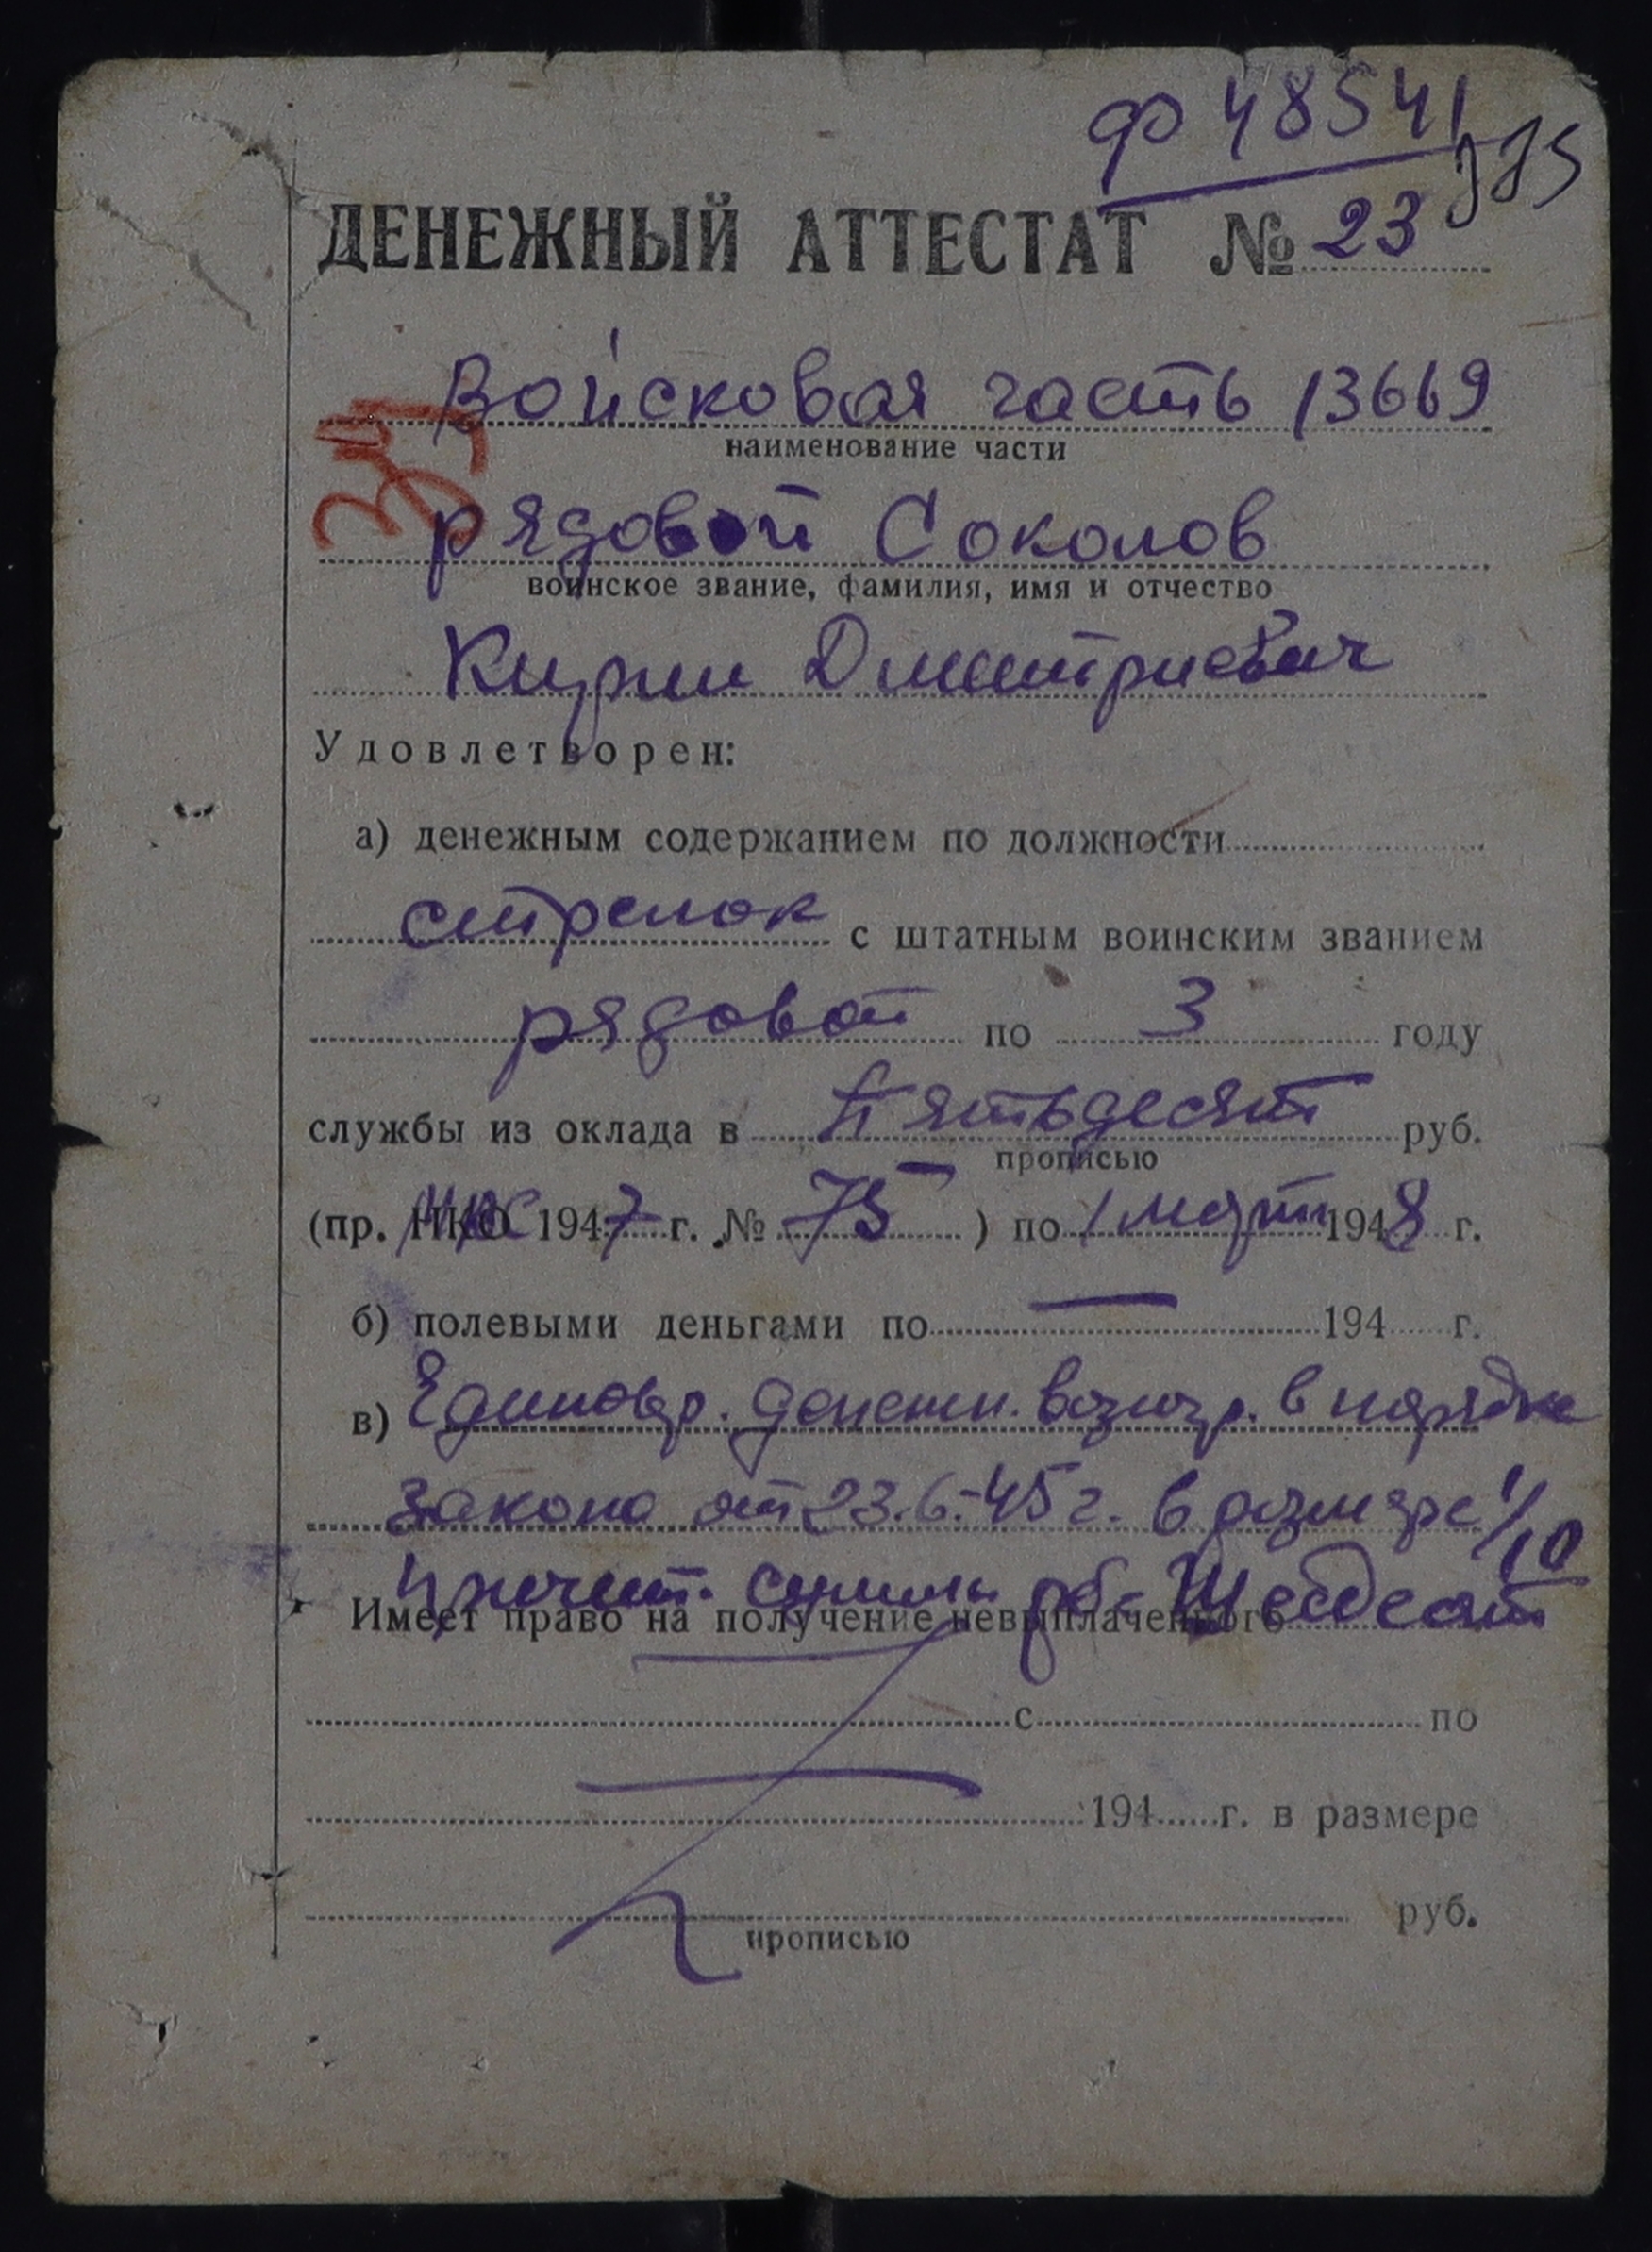 ф 48541
ДЕНЕЖНЫЙ АТТЕСТАТ № 23
Войсковая часть 13669
наименование части
рядовой Соколов
воинское звание, фамилия, имя и отчество
Дмитриевич
Удовлетворен:
а) денежным содержанием по должности
стрелок с штатным воинским званием
рядовой по 3 году
службы из оклада в Пятьдесят руб.
прописью
(пр. НКО 1947 г. № 75 ) по 1 март 1948 г.
б) полевыми деньгами по — 194 г.
в) Единовр. денежн. вознагр. в порядке
закона от 23.6.45 г. в размере 1/10
причит. суммы рб. Шесдесят
Имеет право на получение невыплаченного
с по
194 г. в размере
руб.
прописью